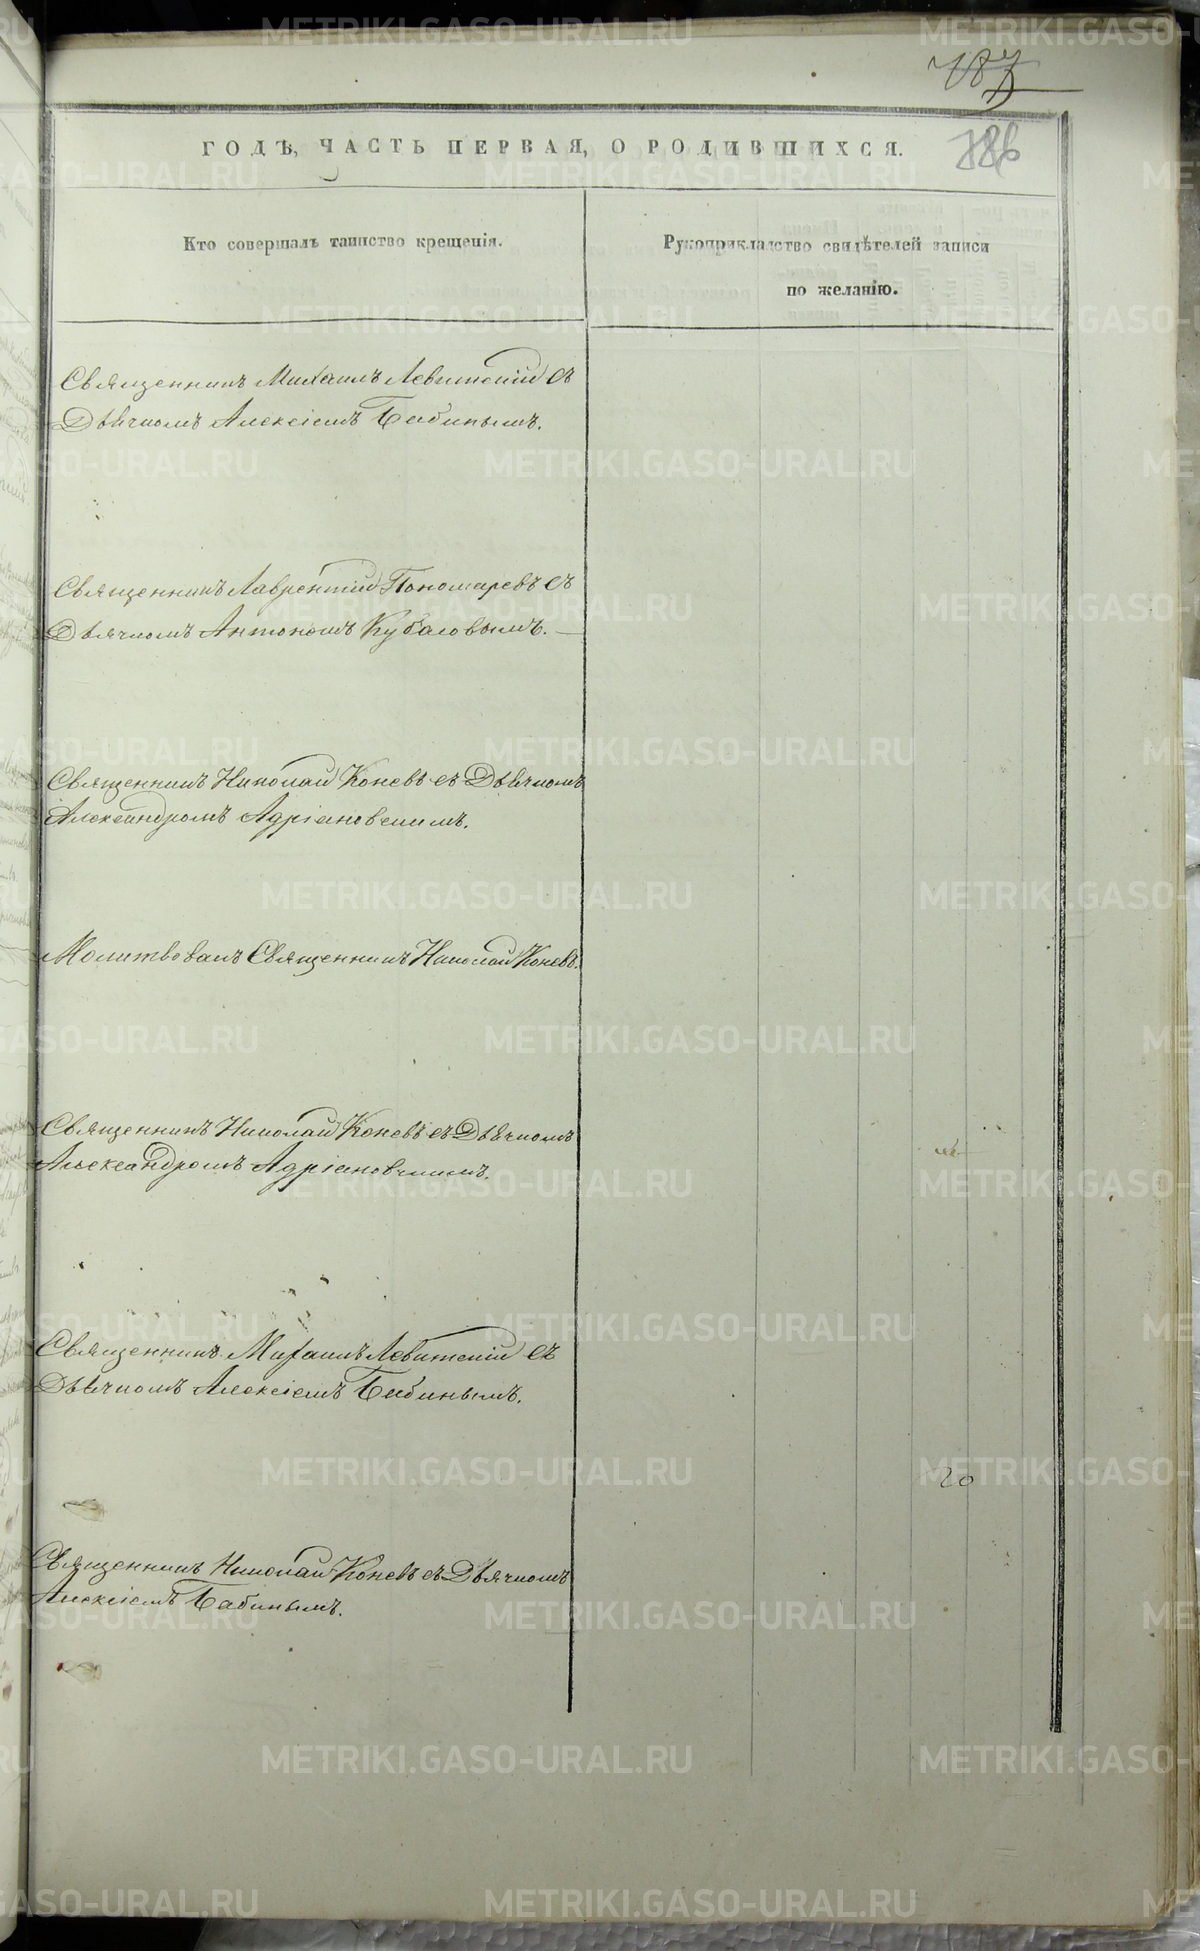 787
786
ГОДѢ, ЧАСТЬ ПЕРВАЯ, О РОДИВШИХСЯ.
Кто совершалъ таинство крещенія.
Рукоприкладство свидѣтелей записи
по желанію.
Священникъ Михаилъ Левитскій съ
Дьячкомъ Алексіемъ Бабинымъ.
Священникъ Лаврентій Пономаревъ съ
Дьячкомъ Антономъ Кубасовымъ. —
Священникъ Николай Коневъ съ Дьячкомъ
Александромъ Адріановскимъ.
Молитвовалъ Священникъ Николай Коневъ.
Священникъ Николай Коневъ съ Дьячкомъ
Александромъ Адріановскимъ.
Священникъ Михаилъ Левитскій съ
Дьячкомъ Алексіемъ Бабинымъ.
20
Священникъ Николай Коневъ съ Дьячкомъ
Алексіемъ Бабинымъ.
METRIKI.GASO-URAL.RU